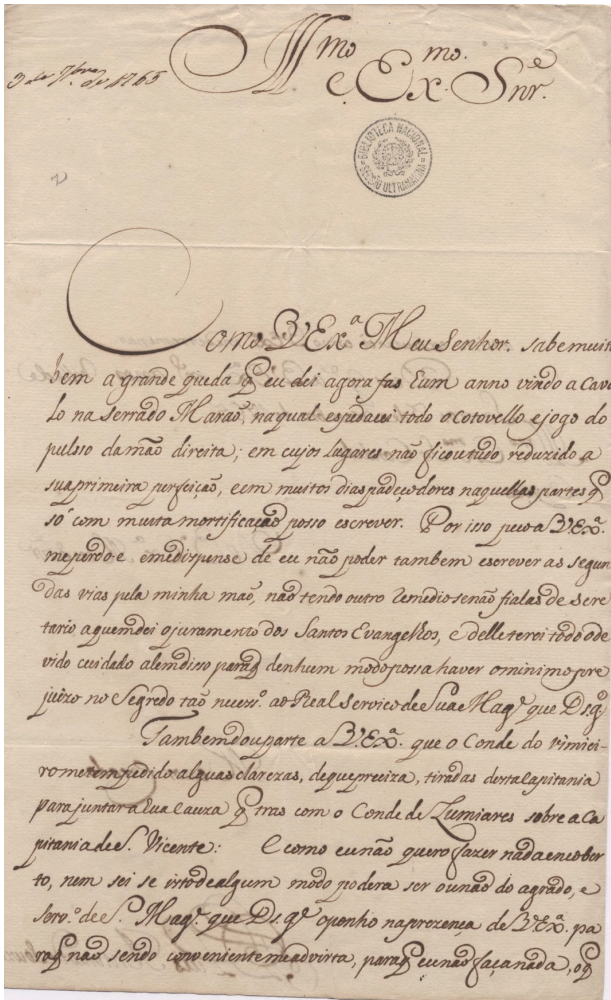 Illmo. e Exmo. Snr.e
3 de 7bro de 1765
BIBLIOTECA NACIONAL
SECÇÃO ULTRAMARINA
Como V Exª. Meu Senhor. sabe muito
bem a grande queda q̃ eu dei agora fas hum anno vindo a Cava
lo na serra do Marão, na qual esfadaui todo o cotovello e jogo do
pulsso da mão direita; em cujos lugares não ficou tudo reduzido a
sua primeira perfeição, e em muitos dias padeço dores naquellas partes q̃
só com muita mortificação posso escrever. Por isso peço a V Exª.
me perdoe e me dispense de eu não poder tambem escrever as segun
das vias pela minha mão, não tendo outro remedio senão fialas de Secre
tario a quem dei o juramento dos Santos Evangelhos, e delle terei todo o de
vido cuidado alem disso para q̃ denhum modo possa haver o minimo pre
juizo no segredo tão necessrº. ao Real serviço de Sua Magᵉ. que Ds. gᵉ
Tambem dou parte a V. Exª. que o Conde do Vimiei-
ro me tem pedido alguas clarezas, de que preciza, tiradas desta Capitania
para juntar a sua Cauza q̃ tras com o Conde de Lumiares sobre a Ca
pitania de S. Vicente: E como eu não quero fazer nada encober
to, nem sei se isto de algum modo podera ser ou não do agrado, e
serv.º de S. Magᵉ. que Ds. gᵉ o ponho na prezença de V. Exª. pa
ra q̃ não sendo conveniente me advirta, para q̃ eu não faça nada, o q̃